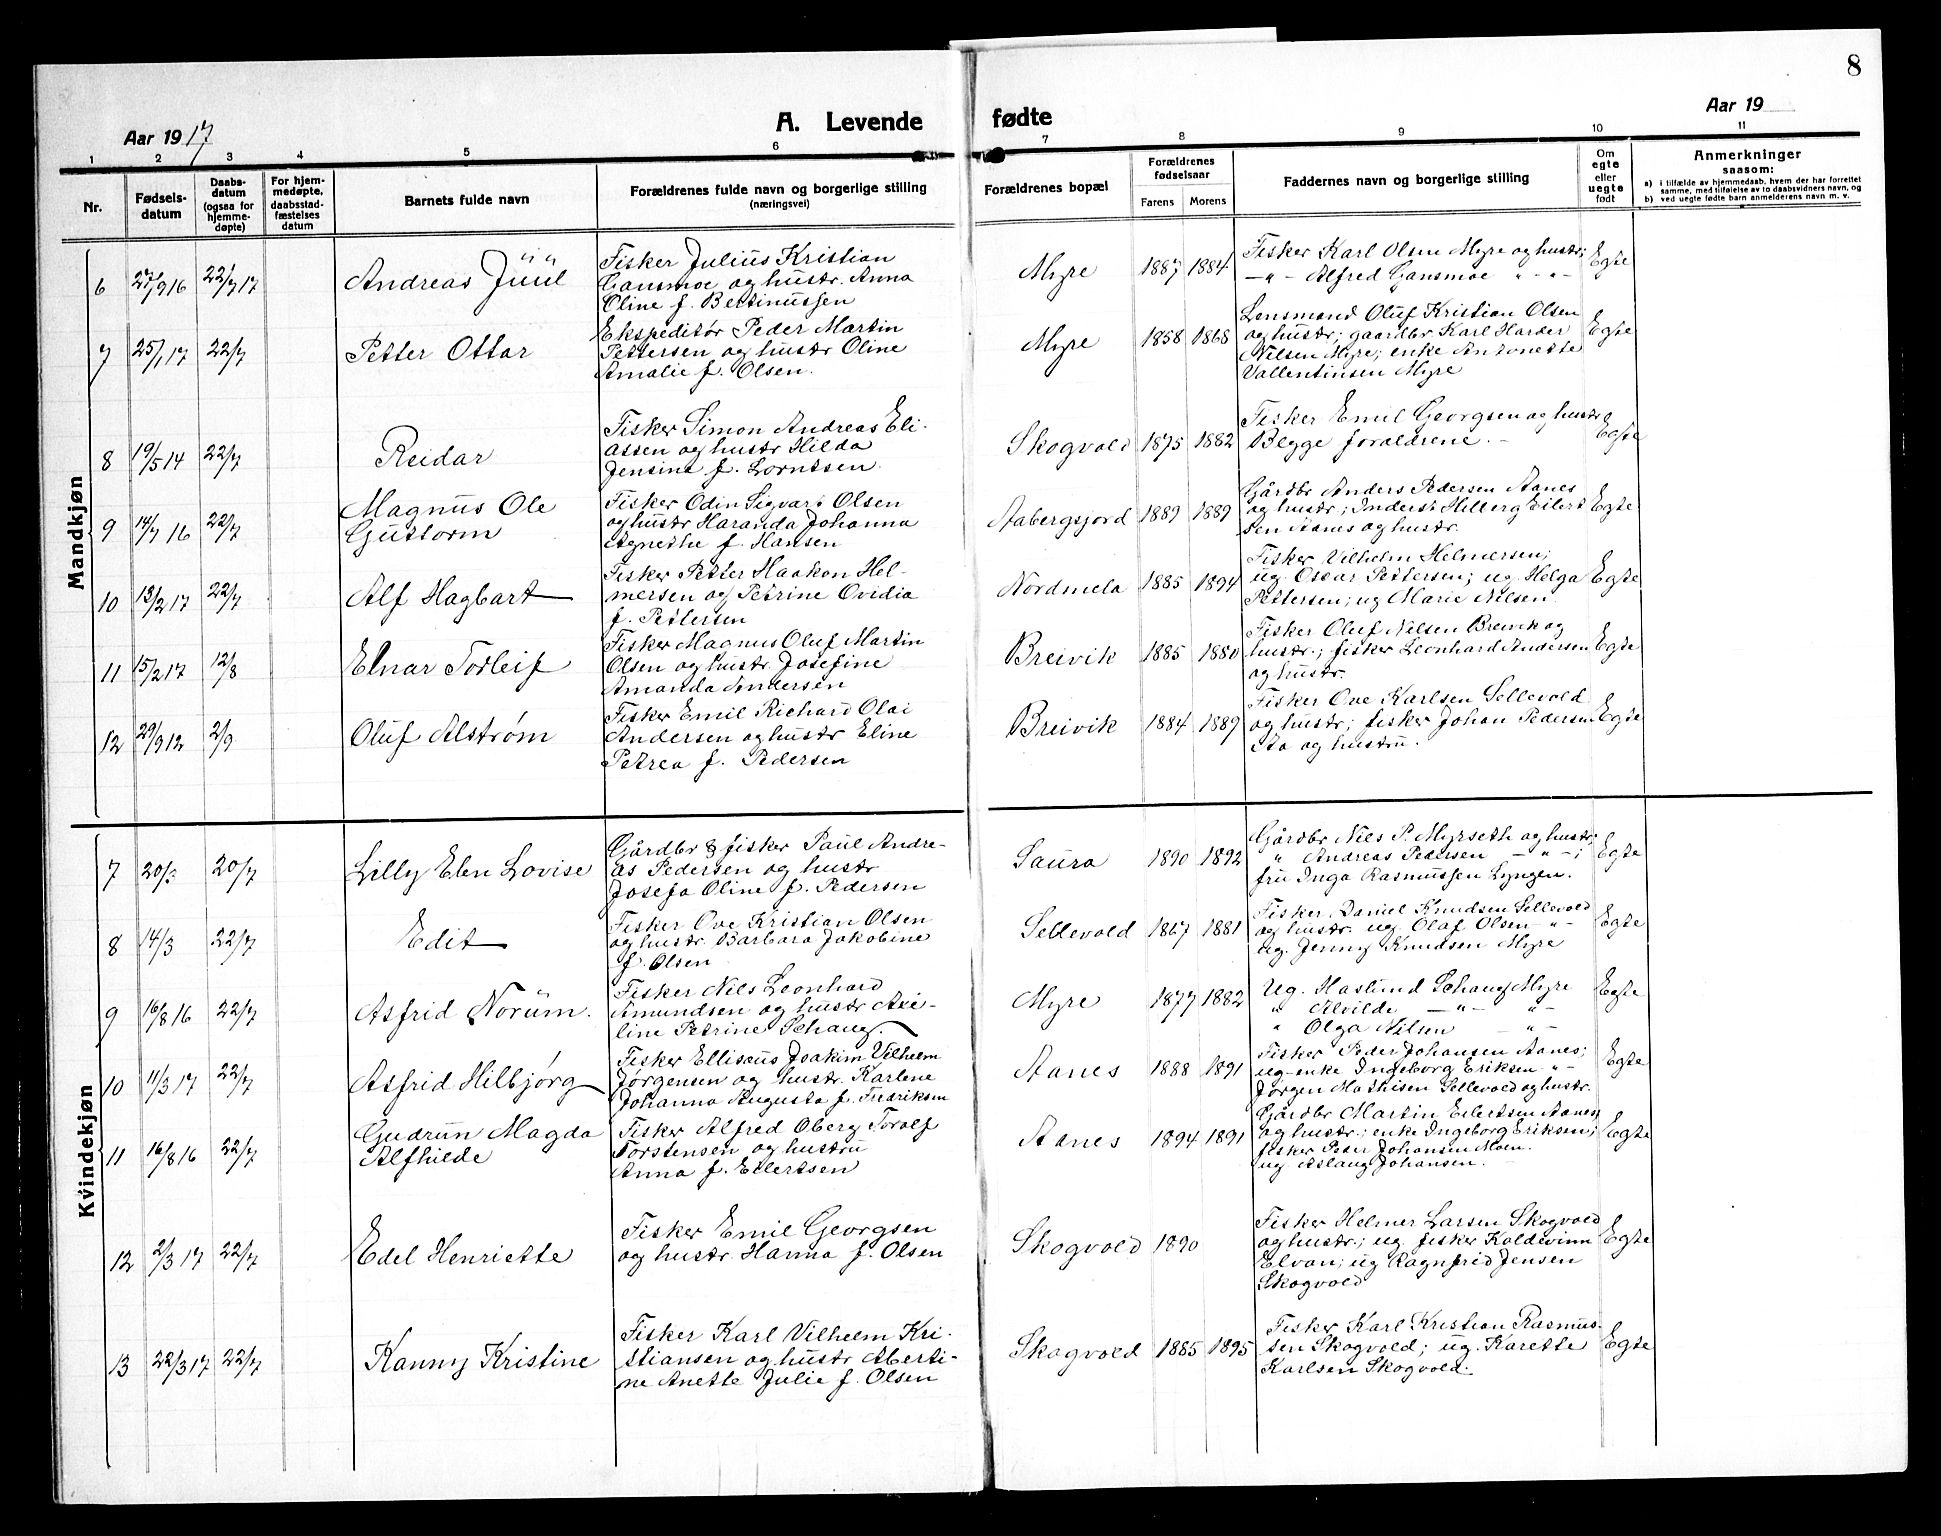 8
Aar 1917
A. Levende fødte
Aar 19
1 2 3 4 5 6 7 8 9 10 11
Nr.
Fødsels-
datum
Daabs-
datum
(ogsaa for
hjemme-
døpte)
For hjem-
medøpte,
daabsstad-
fæstelses
datum
Barnets fulde navn
Forældrenes fulde navn og borgerlige stilling
(næringsvei)
Forældrenes bopæl
Forældrenes
fødselsaar
Farens Morens
Faddernes navn og borgerlige stilling
Om
egte
eller
uegte
født
Anmerkninger
saasom:
a) i tilfælde av hjemmedaab, hvem der har forrettet
samme, med tilføielse av to daabsvidners navn, og
b) ved uegte fødte barn anmelderens navn m. v.
Mandkjøn
6 27/9 16 22/7 17 Andreas Jüül
Fisker Julius Kristian
Gansmoe og hustr. Anna
Oline f. Bertinussen
Myre 1887 1884
Fisker Karl Olsen Myre og hustr;
— " — Alfred Gansmoe " - " -
Egte
7 25/1 17 22/7 Petter Ottar
Ekspeditør Peder Martin
Pettersen og hustr Oline
Amalie f. Olsen.
Myre 1858 1868
Lensmand Oluf Kristian Olsen
og hustr; gaardbr Karl Harder
Nilsen Myre; enke Antonette
Vallentinsen Myre
Egte
8 19/5 14 22/7 Reidar
Fisker Simon Andreas Eli-
assen og hustr Hilda
Jensine f. Lorntsen.
Skogvold 1875 1882
Fisker Emil Georgsen og hustr
Begge foraldrene. —
Egte
9 14/7 16 22/7 Magnus Ole
Guttorm
Fisker Odin Sigvart Olsen
og hustr Haranda Johanna
Agnethe f. Hansen
Aabergsjord 1889 1889
Gårdbr Anders Pedersen Aanes
og hustr; Inderst Hilberg Eilert
sen Aanes og hustr.
Egte
10 13/2 17 22/7 Alf Hagbart
Fisker Petter Haakon Hel-
mersen og Petrine Ovidia
f. Pettersen
Nordmela 1885 1894
Fisker Vilhelm Helmersen;
ug. Oscar Pettersen; ug. Helga
Pettersen; ug Marie Nilsen.
Egte
11 15/2 17 12/8 Einar Torleif
Fisker Magnus Oluf Martin
Olsen og hustr. Josefine
Amanda Andersen
Breivik 1885 1880
Fisker Oluf Nilsen Breivik og
hustr.; fisker Leonhard Andersen
og hustr.
Egte
12 29/9 12 2/9 Oluf Alstrøm
Fisker Emil Richard Olai
Andersen og hustr Eline
Petrea f. Pedersen
Breivik 1884 1889
Fisker Ove Karlsen Sellevold
og hustr; fisker Johan Pedersen
Aa og hustru.
Egte
Kvindekjøn
7 20/3 20/7 Lilly Elen Lovise
Gårdbr & fisker Paul Andre-
as Pedersen og hustr
Josefa Oline f. Pedersen
Saura 1890 1892
Gårdbr Nils P. Myrseth og hustr;
" Andreas Pedersen — " — ;
fru Inga Rasmussen Lyngen.
Egte
8 14/3 22/7 Edit
Fisker Ove Kristian Olsen
og hustr. Barbara Jakobine
f. Olsen
Sellevold 1867 1881
Fisker Daniel Knudsen Sellevold
og hustr. ug. Olaf Olsen " -
ug. Jenny Knudsen Myre
Egte
9 16/8 16 22/7 Asfrid Norüm.
Fisker Nils Leonhard
Amundsen og hustr Axe-
line Petrine Schaug.
Myre 1877 1882
Ug. Haslund Schaug Myre
" Alvilde — " — " -
" Olga Nilsen — " -
Egte
10 11/3 17 22/7 Asfrid Hilbjørg
Fisker Ellisæus Joakim Vilhelm
Jørgensen og hustr. Karlene
Johanna Augusta f. Fredriksen
Aanes 1888 1891
Fisker Peder Johansen Aanes;
ug. enke Ingeborg Eriksen " -
Jørgen Mathisen Sellevold og hustr.
Egte
11 16/8 16 22/7 Gudrun Magda
Alfhilde
Fisker Alfred Oberg Toralf
Torstensen og hustru
Anna f. Eilertsen
Aanes 1894 1891
Gårdbr Martin Eilertsen Aanes
og hustr.; enke Ingeborg Eriksen;
fisker Peter Johansen Moen.
ug Aslaug Johansen.
Egte
12 2/3 17 22/7 Edel Henriette
Fisker Emil Georgsen
og hustr. Hanna f. Olsen
Skogvold 1890
Fisker Helmer Larsen Skogvold
og hustr.; ug. fisker Koldevinn
Elvan; ug Ragnfrid Jensen
Skogvold
Egte
13 22/3 17 22/7 Kanny Kristine
Fisker Karl Vilhelm Kri-
stiansen og hustr Aberti-
ne Anette Julie f. Olsen
Skogvold 1885 1895
Fisker Karl Kristian Rasmus-
sen Skogvold; ug. Karette
Karlsen Skogvold.
Egte